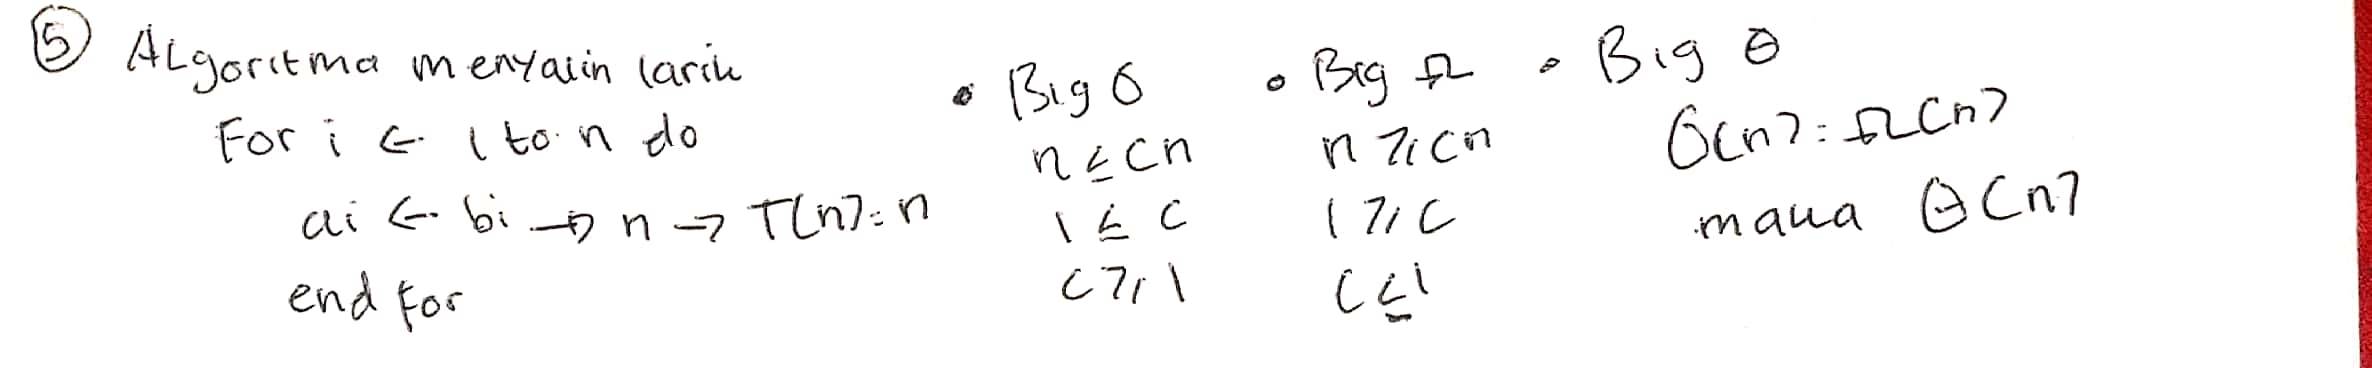 ⑤ Algoritma menyalin larik
For i ← 1 to n do
ai ← bi → n → T(n) = n
end for
• Big O
n ≤ cn
1 ≤ c
c ≥ 1
• Big Ω
n ≥ cn
1 ≥ c
c ≤ 1
• Big Θ
O(n) = Ω(n)
maka Θ(n)